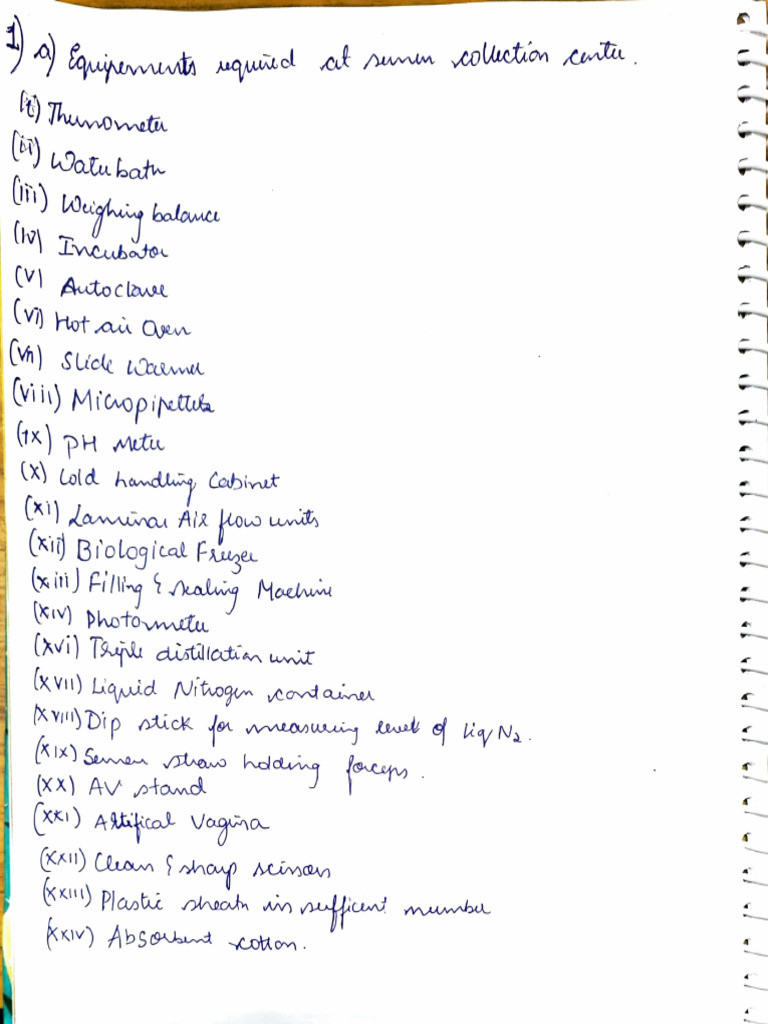 1) a) Equipements required at semen collection center.
(i) Thermometer
(ii) Water bath
(iii) Weighing balance
(iv) Incubator
(v) Autoclave
(vi) Hot air Oven
(vii) Slide Warmer
(viii) Micropipettets
(ix) PH Meter
(x) Cold handling Cabinet
(xi) Laminar Air flow units
(xii) Biological Freezer
(xiii) Filling & sealing Machine
(xiv) Photometer
(xvi) Triple distillation unit
(xvii) Liquid Nitrogen container
(xviii) Dip stick for measuring level of liq N2.
(xix) Semen straw holding forceps.
(xx) AV stand
(xxi) Artifical Vagina
(xxii) Clean & sharp scissors
(xxiii) Plastic sheath in sufficent number
(xxiv) Absorbent cotton.